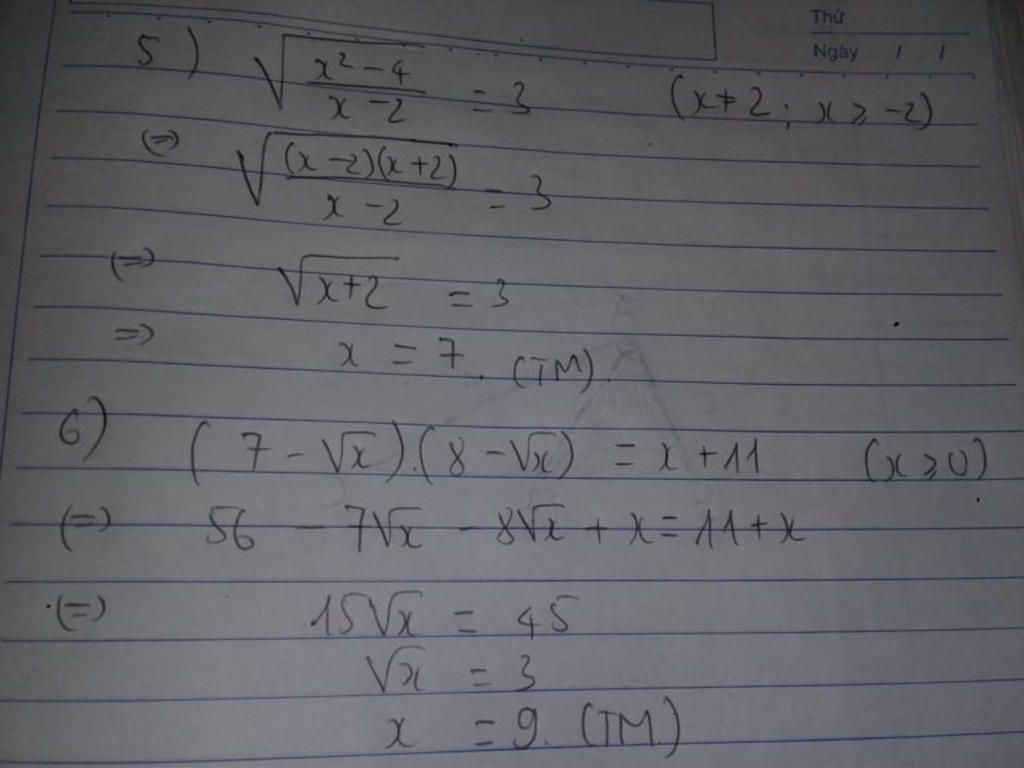 Thứ
Ngày / /
5) √((x² - 4)/(x - 2)) = 3 (x ≠ 2; x ≥ -2)
(=) √((x - 2)(x + 2)/(x - 2)) = 3
(=) √(x+2) = 3
=> x = 7. (TM).
6) (7 - √x).(8 - √x) = x + 11 (x ≥ 0)
(=) 56 - 7√x - 8√x + x = 11 + x
(=) 15√x = 45
√x = 3
x = 9. (TM.)